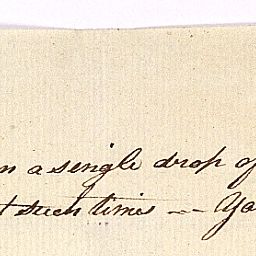 n a single drop of
t such times -- Ya